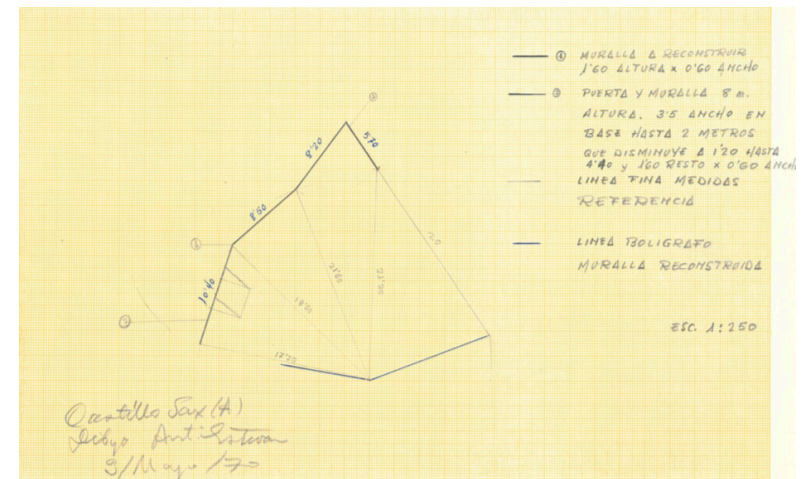 ① MURALLA A RECONSTRUIR
1'60 ALTURA x 0'60 ANCHO
② PUERTA Y MURALLA 8 m.
ALTURA. 3'5 ANCHO EN
BASE HASTA 2 METROS
QUE DISMINUYE A 1'20 HASTA
4'40 y 1'60 RESTO x 0'60 ANCHO
LINEA FINA MEDIDAS
REFERENCIA
LINEA BOLIGRAFO
MURALLA RECONSTRUIDA
ESC. 1:250
8'20
5'70
8'50
10'40
20
Castillo Sax (A)
Dibujo
3/Mayo/70